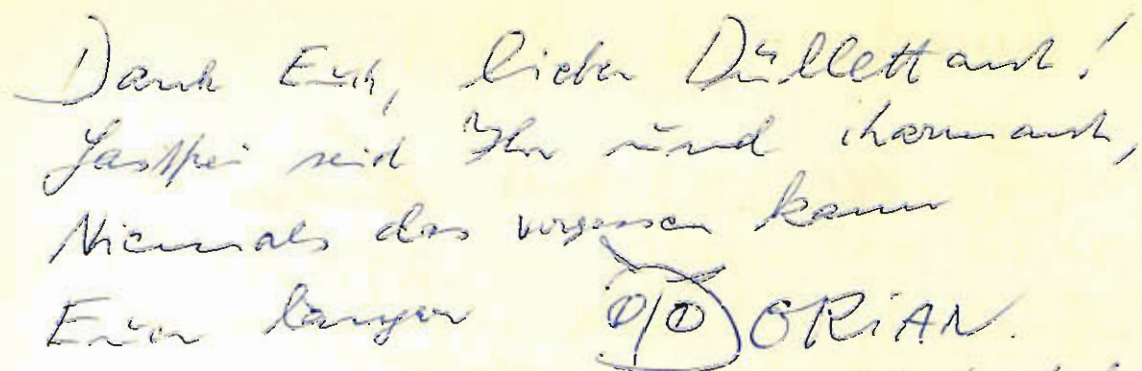 Dank Euch, lieber Düllettant!
Gastfrei seid Ihr und charmant,
Niemals das vergessen kann
Euer langer DORiAN.